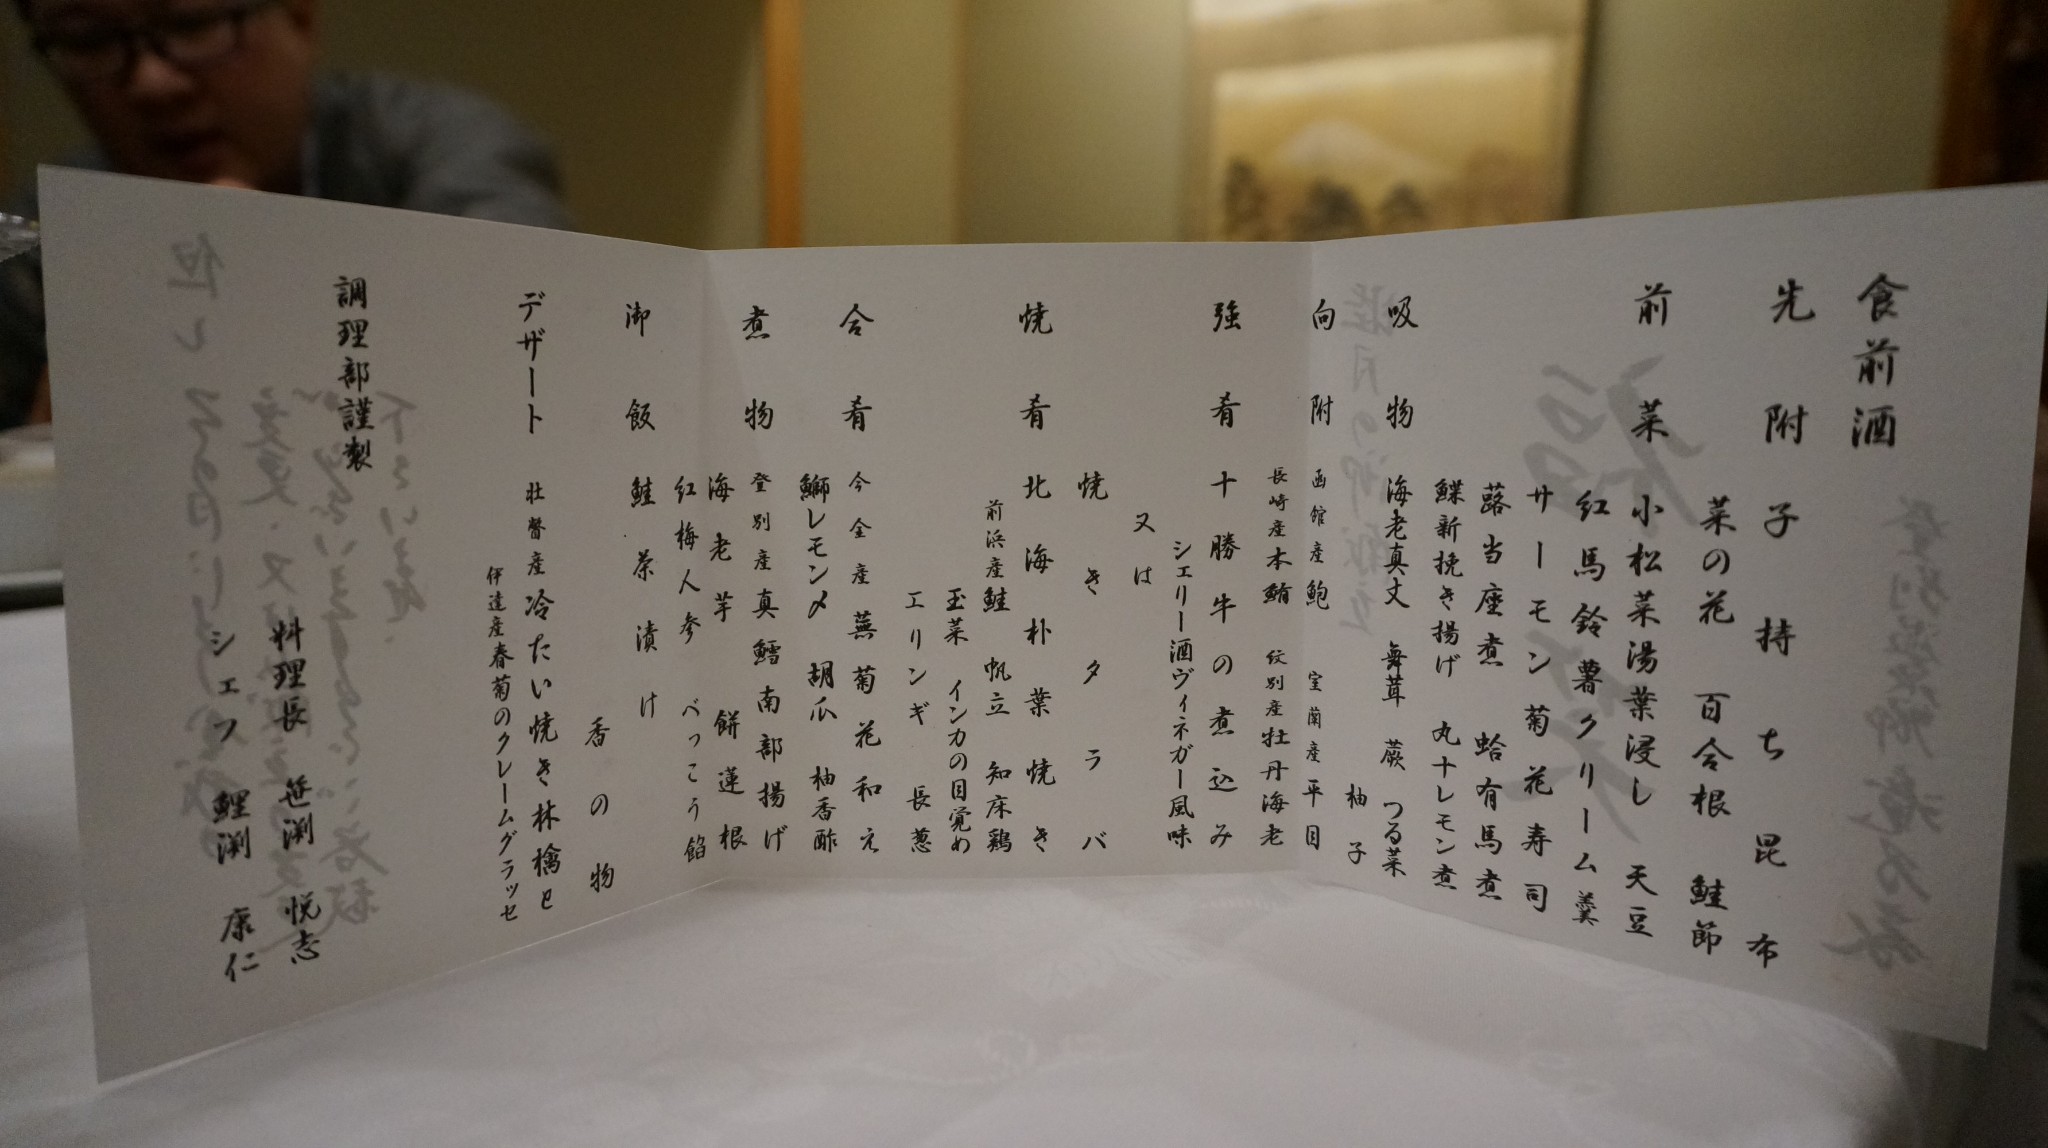 食前酒
先附 子持ち昆布
菜の花 百合根 鮭節
前菜 小松菜湯葉浸し 天豆
紅馬鈴薯クリーム羹
サーモン菊花寿司
蕗当座煮 蛤有馬煮
鰈新挽き揚げ 丸十レモン煮
吸物 海老真丈 舞茸 蕨 つる菜
柚子
向附 函館産鮑 室蘭産平目
長崎産本鮪 紋別産牡丹海老
強肴 十勝牛の煮込み
シェリー酒ヴィネガー風味
又は
焼きタラバ
焼肴 北海朴葉焼き
前浜産鮭 帆立 知床鶏
玉菜 インカの目覚め
エリンギ 長葱
合肴 今金産蕪菊花和え
鰤レモン〆 胡瓜 柚香酢
煮物 登別産真鱈南部揚げ
海老芋 餅蓮根
紅梅人参 べっこう餡
御飯 鮭茶漬け
香の物
デザート 壮瞥産冷たい焼き林檎と
伊達産春菊のクレームグラッセ
調理部謹製
料理長 笹渕 悦志
シェフ 鯉渕 康仁